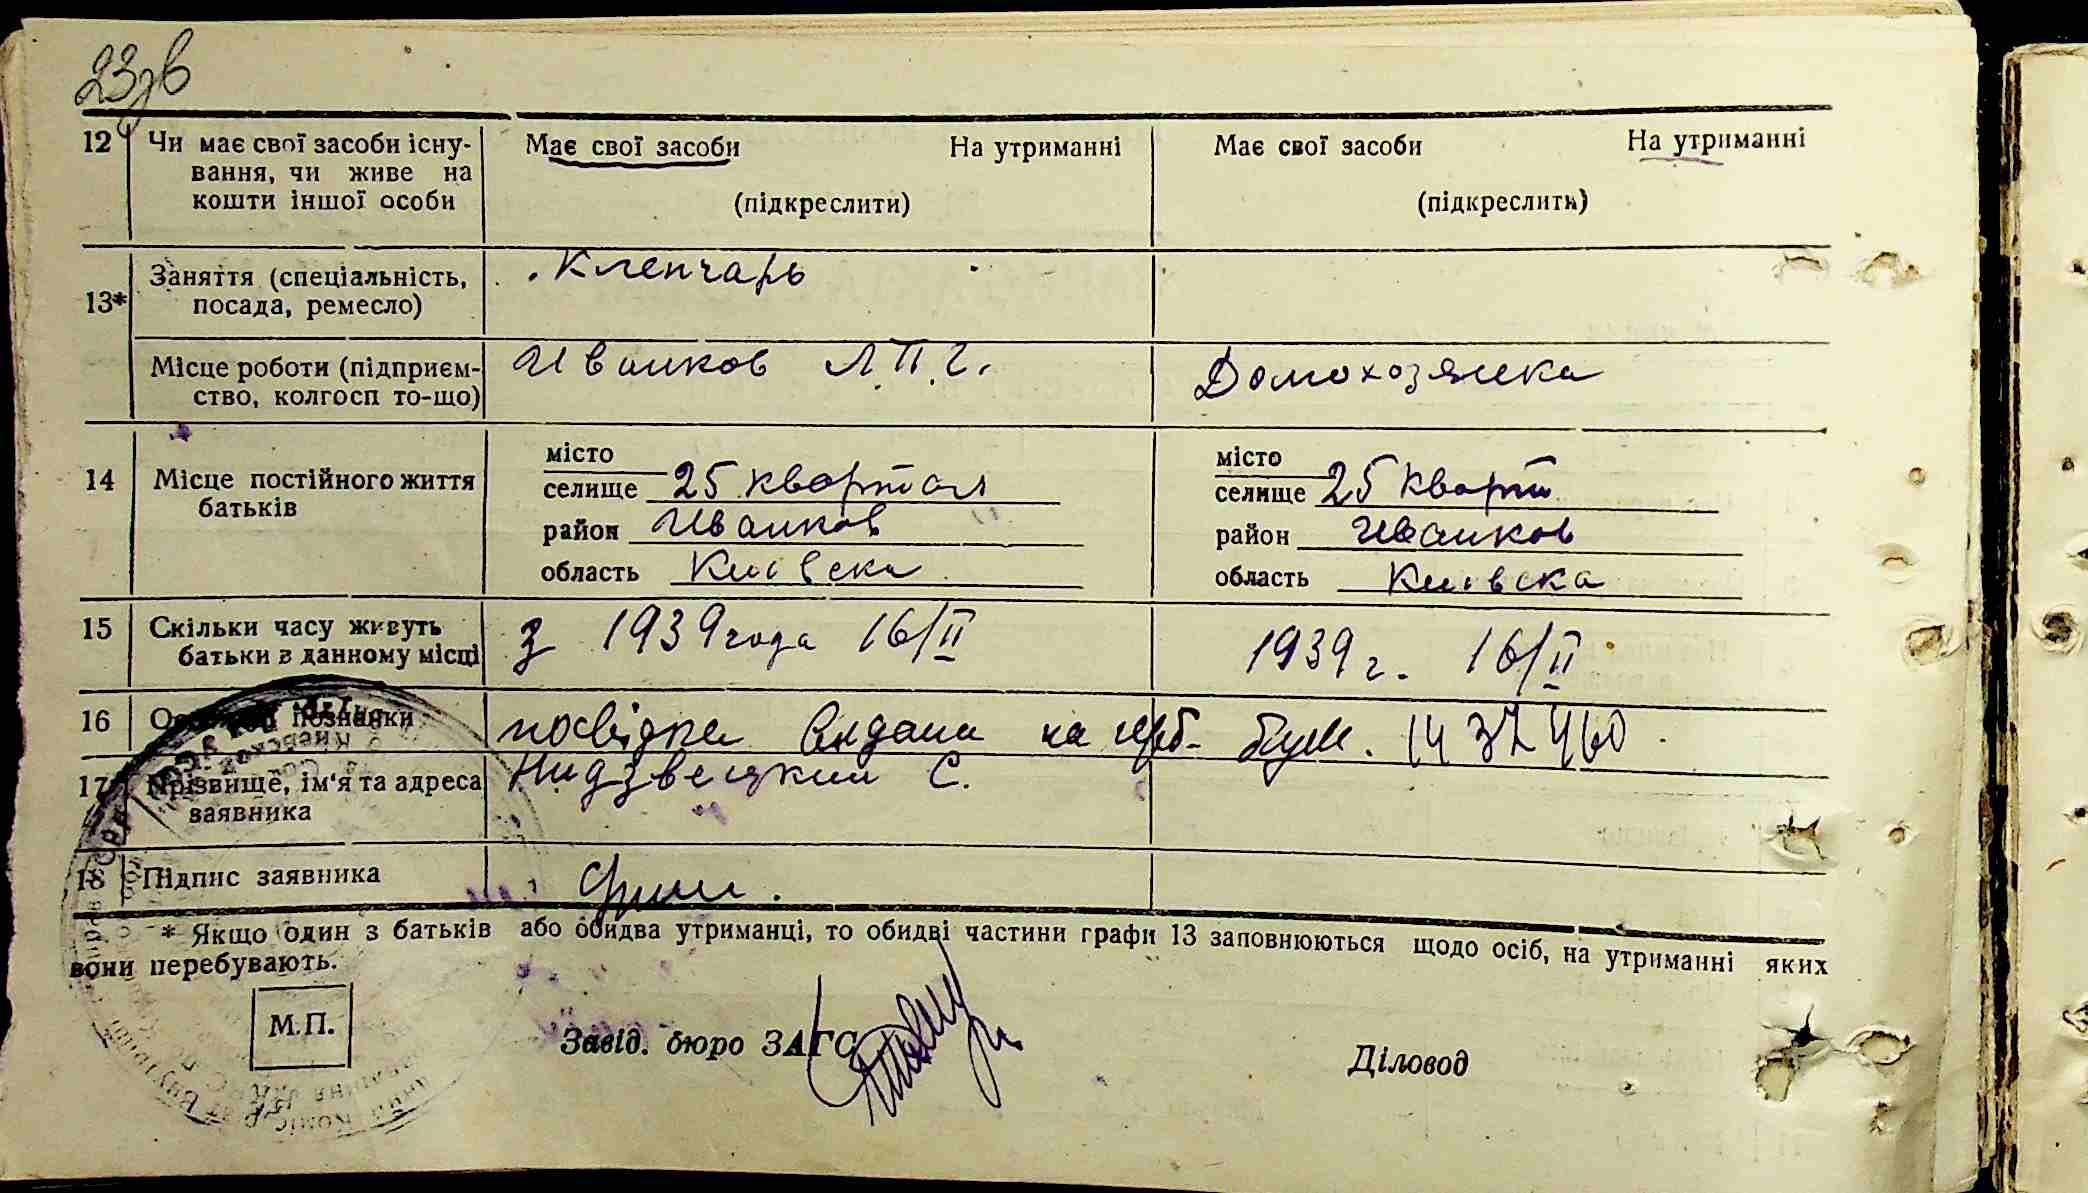 23зв
12 Чи має свої засоби існу- Має свої засоби На утриманні Має свої засоби На утриманні
вання, чи живе на
кошти іншої особи (підкреслити) (підкреслити)
13* Заняття (спеціальність, Клепчарь
посада, ремесло)
Місце роботи (підприєм- Иванков Л.П.Г. Домохозяйка
ство, колгосп то-що)
14 Місце постійного життя батьків
місто місто
селище 25 квартал селище 25 кварт
район Иванков район Иванков
область Київска область Київска
15 Скільки часу живуть з 1939 года 16/II 1939 г. 16/II
батьки в данному місці
16 познанки посвідка видана на герб. бум. 1437460
17 Прізвище, ім'я та адреса Нидзвецкий С.
заявника
18 Підпис заявника
* Якщо один з батьків або обидва утриманці, то обидві частини графи 13 заповнюються щодо осіб, на утриманні яких
вони перебувають.
М.П.
Завід. бюро ЗАГС Діловод